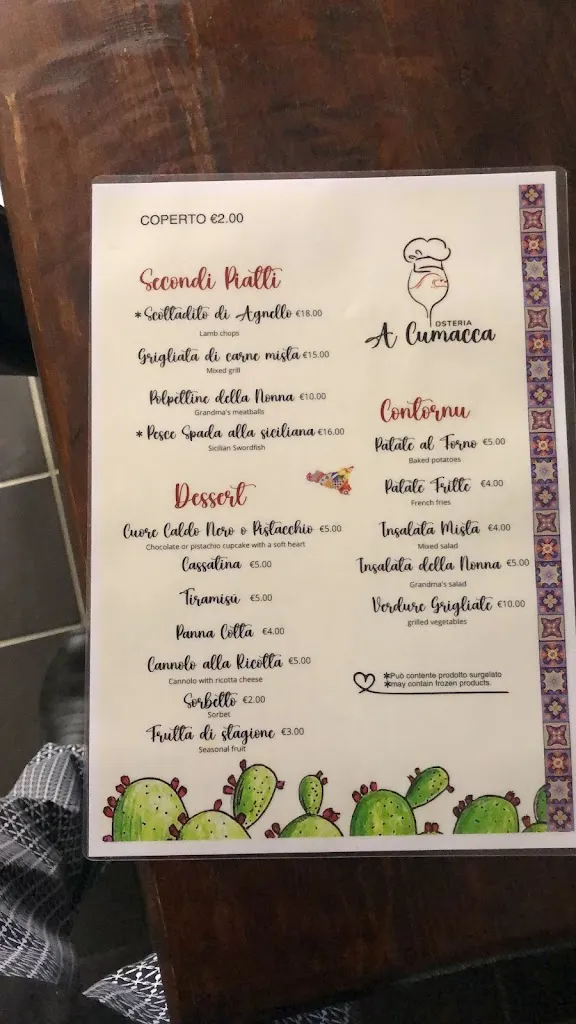 COPERTO €2.00
Secondi Piatti
*Scottadito di Agnello €18.00
Lamb chops
Grigliata di carne mista €15.00
Mixed grill
Polpettine della Nonna €10.00
Grandma's meatballs
* Pesce Spada alla siciliana €16.00
Sicilian Swordfish
Dessert
Cuore Caldo Nero o Pistacchio €5.00
Chocolate or pistachio cupcake with a soft heart
Cassatina €5.00
Tiramisù €5.00
Panna Cotta €4.00
Cannolo alla Ricotta €5.00
Cannolo with ricotta cheese
Sorbetto €2.00
Sorbet
Frutta di stagione €3.00
Seasonal fruit
OSTERIA
A Cumacca
Contornu
Patate al Forno €5.00
Baked potatoes
Patate Fritte €4.00
French fries
Insalata Mista €4.00
Mixed salad
Insalata della Nonna €5.00
Grandma's salad
Verdure Grigliate €10.00
grilled vegetables
*Può contente prodotto surgelato
*may contain frozen products.